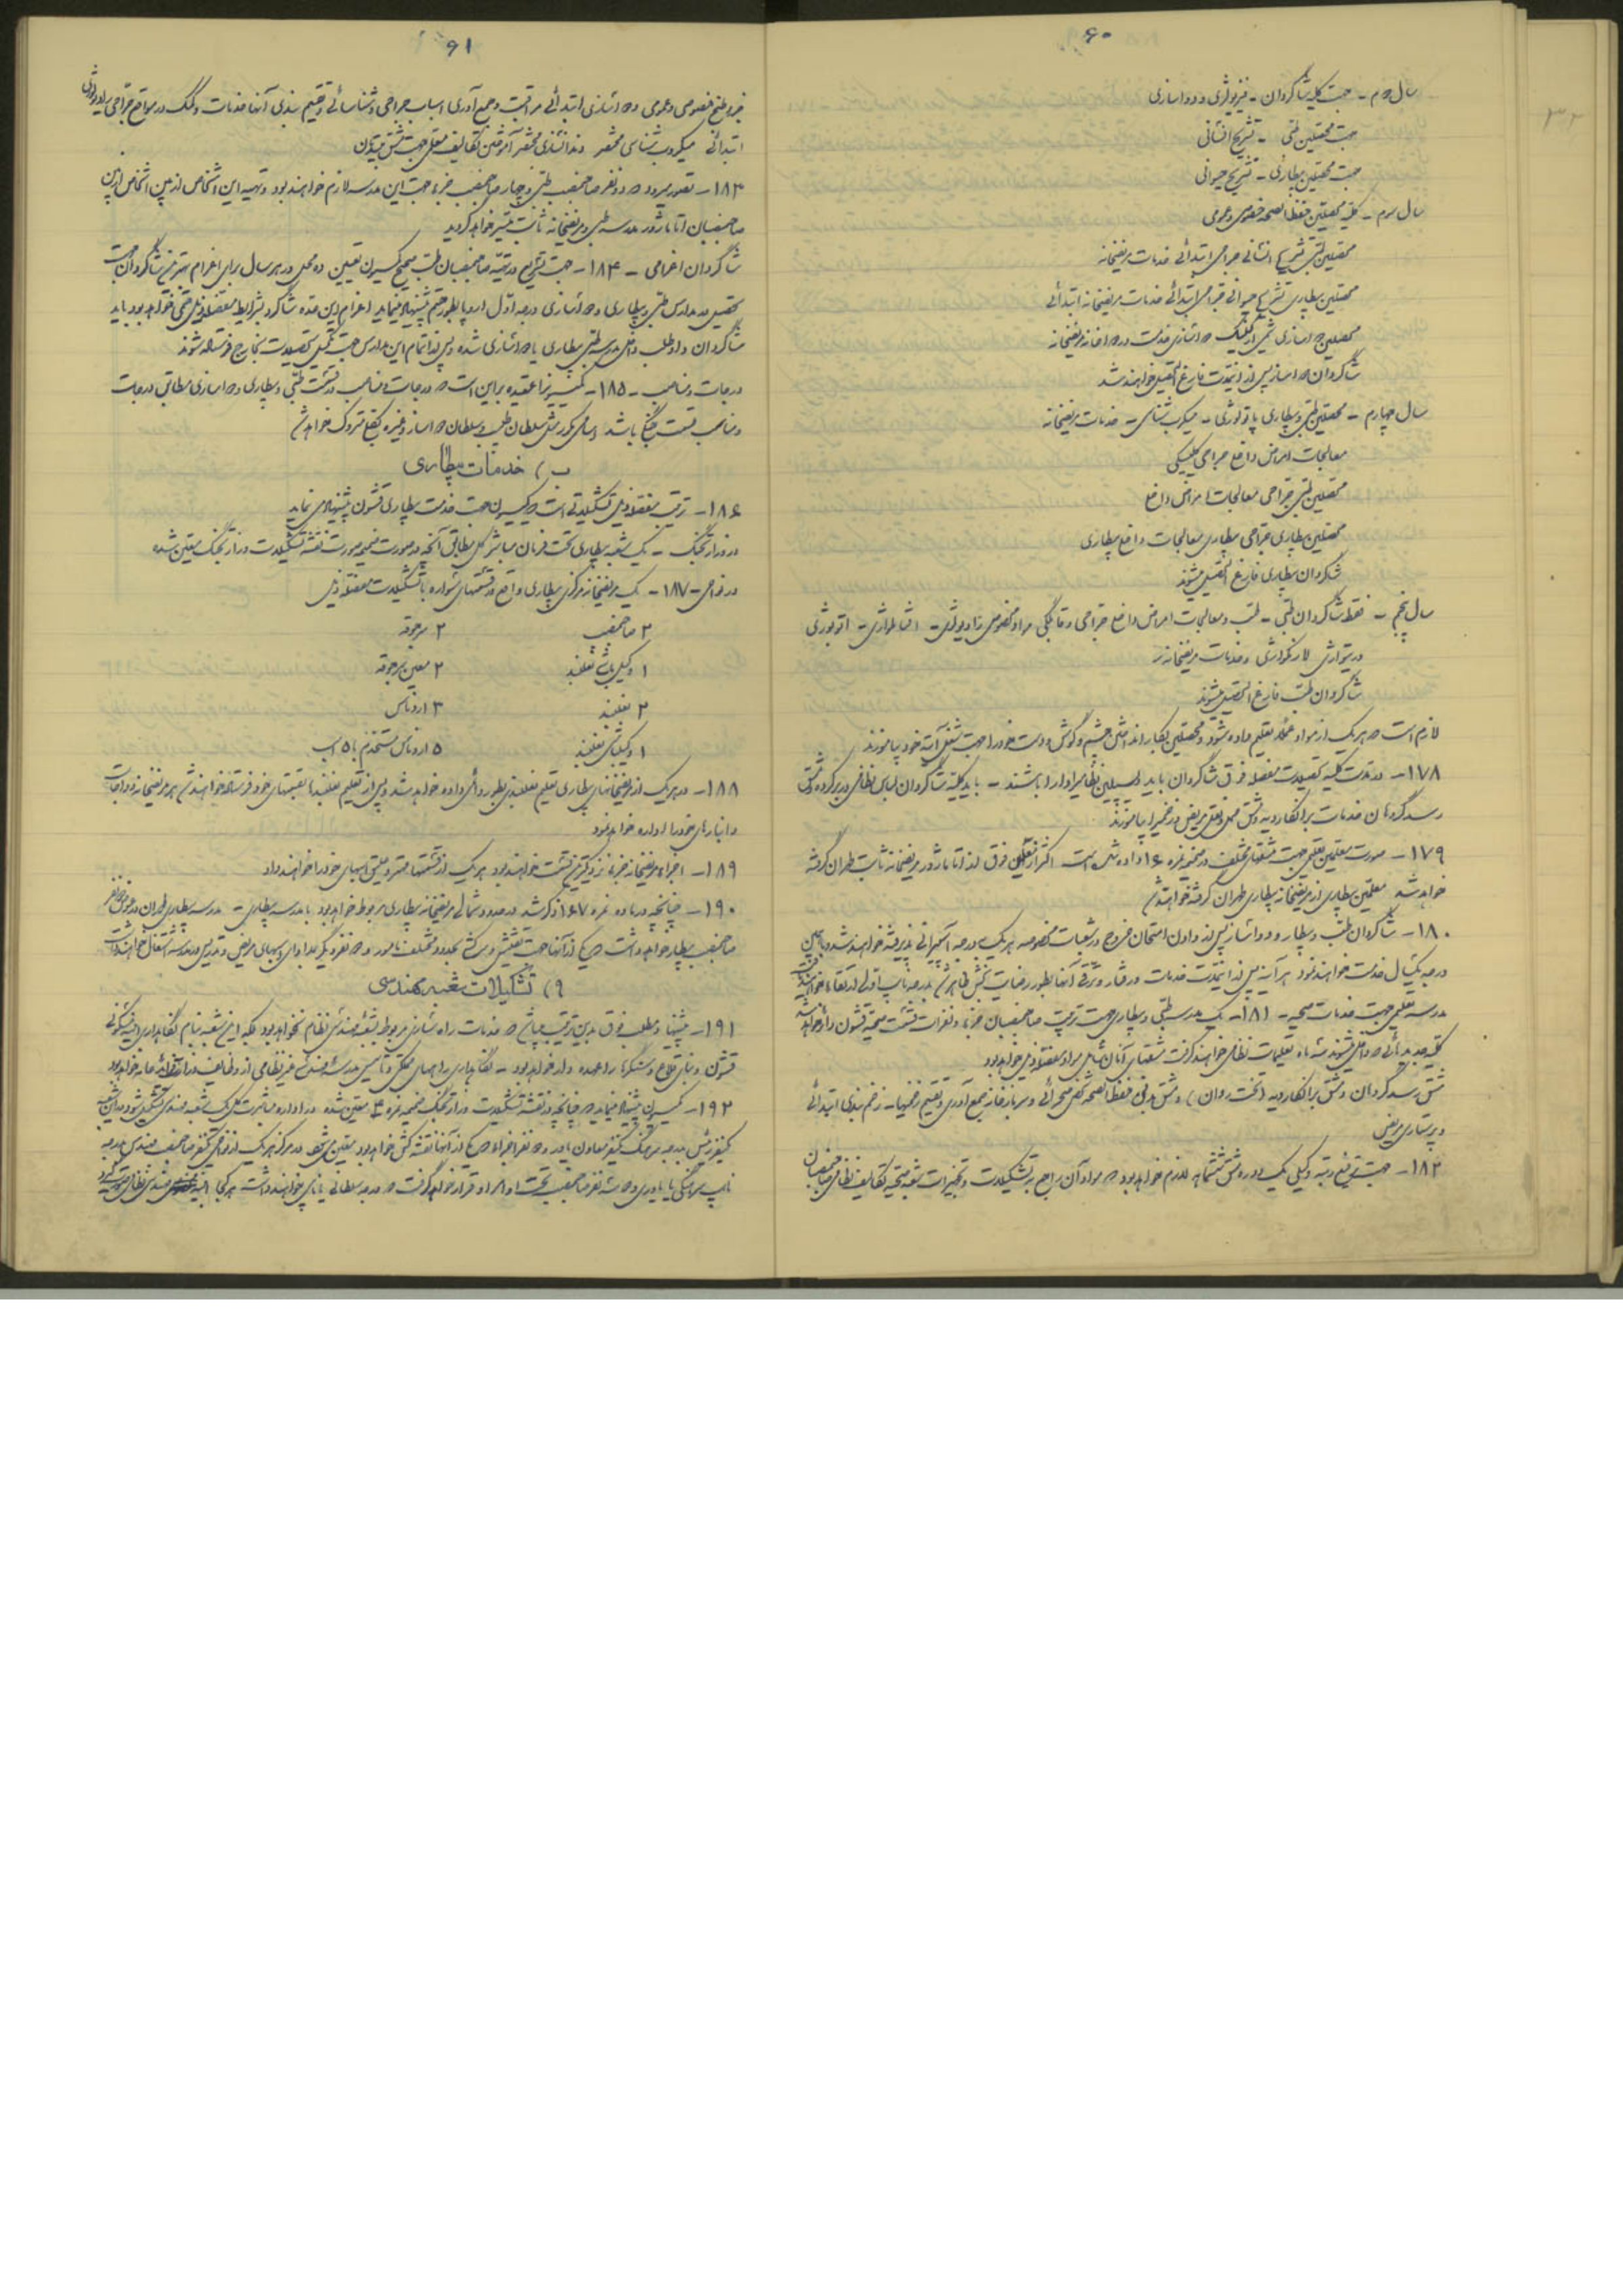 ۶۰
سال دوم - جهت کلیه شاگردان - فیزیولژی و دواسازی
جهت محصلین طبی - تشریح انسانی
جهت محصلین بیطاری - تشریح حیوانی
سال سوم - کلیه محصلین حفظ الصحه خصوصی و عمومی
محصلین طبی تشریح انسانی جراحی ابتدائی خدمات مریضخانه
محصلین بیطاری تشریح حیوانی جراحی ابتدائی خدمات مریضخانه ابتدائی
محصلین دواسازی شیمی دواسازی خدمت در دواخانه مریضخانه
شاگردان دواساز پس از این مدت فارغ التحصیل خواهند شد
سال چهارم - محصلین طبی و بیطاری پاتولوژی - میکرب شناسی - خدمات مریضخانه
معالجات امراض داخلی جراحی کلینیکی
محصلین طبی جراحی معالجات امراض داخلی
محصلین بیطاری جراحی بیطاری معالجات داخلی بیطاری
شاگردان بیطاری فارغ التحصیل میشوند
سال پنجم - فقط شاگردان طبی - طب و معالجات امراض داخلی جراحی و قابلگی مواد مخصوص رادیولژی -
و خدمات مریضخانه
شاگردان طب فارغ التحصیل میشوند
لازم است که هر یک از مواد عملاً تعلیم داده شود و محصلین بکار انداختن چشم و گوش و دست خود را جهت شغل آتیه خود بیاموزند
۱۷۸ - در مدت کلیه تحصیلات مفصله فوق شاگردان باید دیسیپلین نظامی را دارا باشند - باید کلیه شاگردان لباس نظامی در بر کرده مشق
رسد گروهان خدمات برانکاردیه و مشق حمل و نقل مریض و زخمی را بیاموزند
۱۷۹ - صورت معلمین جهت شعبات مختلف در ضمیمه نمره ۱۶ داده شده است اکثر از معلمین فوق از اتاماژور مریضخانه ثابت طهران گرفته
خواهد شد معلمین بیطاری از مریضخانه بیطاری طهران گرفته خواهند شد
۱۸۰ - شاگردان طب و بیطار و دواساز پس از دادن امتحان خروج در شعبات مخصوصه هر یک بدرجه آسپیرانی پذیرفته خواهند شد و با همین
درجه یکسال خدمت خواهند نمود هر آینه پس از این مدت خدمات و رفتار و ترقی آنها بطور رضایت بخش ظاهر شد بدرجه نایب اولی ارتقاء خواهند
مدرسه علمی جهت خدمات صحیه - ۱۸۱ - یک مدرسه طبی و بیطاری جهت تربیت صاحبمنصبان جزء و نفرات قسمت صحیه قشون دائر خواهد شد
کلیه جدیدهائی که داخل میشوند سه ماه تعلیمات نظامی خواهند گرفت مشقهای آنان شامل مواد مفصله ذیل خواهد بود
مشق رسد گروهان و مشق برانکاردیه (تخت روان) و مشق بدنی حفظ الصحه شخصی صحرائی و سربازخانه جمع آوری و تقسیم زخمیها - زخم بندی ابتدائی
و پرستاری مریض
۱۸۲ - جهت ترفیع رتبه وکیلی یک دوره مشق ششماهه لازم خواهد بود که مواد آن راجع به تشکیلات و تجهیزات شعبه صحیه تکالیف نظامی صاحبمنصبان
۶۱
جزء و طبخ خصوصی و عمومی دواسازی ابتدائی مراقبت و جمع آوری اسباب جراحی و شناسائی و تقسیم بندی آنها خدمات و کمک در مواقع جراحی
ابتدائی میکروب شناسی مختصر دندانسازی مختصر آموختن تکالیف معلمی جهت مشق جدیدان
۱۸۳ - تصور میرود که دو نفر صاحبمنصب طبی و چهار صاحبمنصب جزء جهت این مدرسه لازم خواهند بود و تهیه این اشخاص از بین اشخاص
صاحبمنصبان اتاماژور مدرسه طبی و مریضخانه ثابت میسر خواهد گردید
شاگردان اعزامی - ۱۸۴ - جهت تسریع در تهیه صاحبمنصبان طب صحیح کمیسیون تعیین ده محل در هر سال برای اعزام بهترین شاگردان جهت
تحصیل در مدارس طبی و بیطاری و دواسازی درجه اول اروپا بطور حتم پیشنهاد مینماید اعزام این عده شاگرد بشرایط مفصله ذیل حتمی خواهد بود باید
شاگردان داوطلب داخل مدرسه طبی بیطاری یا دواسازی شده و پس از اتمام این مدارس جهت تکمیل تحصیلات بخارج فرستاده شوند
درجات و مناصب - ۱۸۵ - کمیسیون را عقیده بر این است که درجات و مناصب در قسمت طبی و بیطاری و دواسازی مطابق درجات
و مناصب قسمت جنگی باشد اسامی مذکوره مثل سلطان طبیب و سلطان دواساز و غیره بکلی متروک خواهد شد
ب) خدمات بیطاری
۱۸۶ - ترتیب مفصله ذیل تشکیلاتی است که کمیسیون جهت خدمت بیطاری قشون پیشنهاد می نماید
در وزارت جنگ - یک شعبه بیطاری تحت فرمان مباشر کل مطابق آنچه در صورت ضمیمه صورت نقشه تشکیلات وزارت جنگ معین شده
در نواحی - ۱۸۷ - یک مریضخانه مرکزی بیطاری واقع در قسمتهای سواره با تشکیلات مفصله ذیل
۲ صاحبمنصب ۲ سرجوقه
۱ وکیل باشی نعلبند ۲ معین سرجوقه
۲ نعلبند ۳ اردنانس
۱ وکیل نعلبند ۵ اردنانس مستخدم با ۵ اسب
۱۸۸ - در هر یک از مریضخانهای بیطاری تعلیم نعلبندی بطور دائمی داده خواهد شد و پس از تعلیم نعلبندها بقسمتهای خود فرستاده خواهند شد هر مریضخانه دواجات
و انبارهای خود را اداره خواهد نمود
۱۸۹ - اجزاء مریضخانه جزء نزدیکترین قسمت خواهند بود هر یک از قسمتها مستقیماً علیق اسبهای خود را خواهند داد
۱۹۰ - چنانچه در ماده نمره ۱۶۷ ذکر شد در حدود شمالی مریضخانه بیطاری مربوط خواهد بود با مدرسه بیطاری - مدرسه بیطاری طهران
صاحبمنصب بیطار خواهد داشت که یکی از آنها جهت تفتیش و سرکشی بحدود مختلف مامور و دو نفر دیگر بمداوای اسبهای مریض و تدریس در مدرسه اشتغال خواهند داشت
۹) تشکیلات شعبه مهندسی
۱۹۱ - پیشنهاد مطلب فوق بدین ترتیب میباشد که خدمات راه سازی مربوط بشعبه مهندسی نظام نخواهد بود بلکه این شعبه بنام نگاهداری ابنیه مسکونی
قشون و بنای قلاع و سنگرها را عهده دار خواهد بود - نگاهداری راههای جنگی و تاسیس مدرسه مهندسی غیر نظامی از وظایف وزارت فوائد عامه خواهد بود
۱۹۲ - کمیسیون پیشنهاد مینماید که چنانچه در نقشه تشکیلات وزارت جنگ ضمیمه نمره ۳ معین شده در اداره مباشرت کل یک شعبه مهندسی تشکیل شود
یکنفر رئیس بدرجه سرهنگ یکنفر معاون یاور و دو نفر اجزاء که یکی از آنها نقشه کش خواهد بود معین می شود در مرکز هر یک از نواحی یکنفر صاحبمنصب مهندس بدرجه
نایب سرهنگی یا یاوری و دو سه نفر صاحبمنصب تحت اوامر او قرار خواهد گرفت که درجه سلطانی یا نایبی خواهند داشت